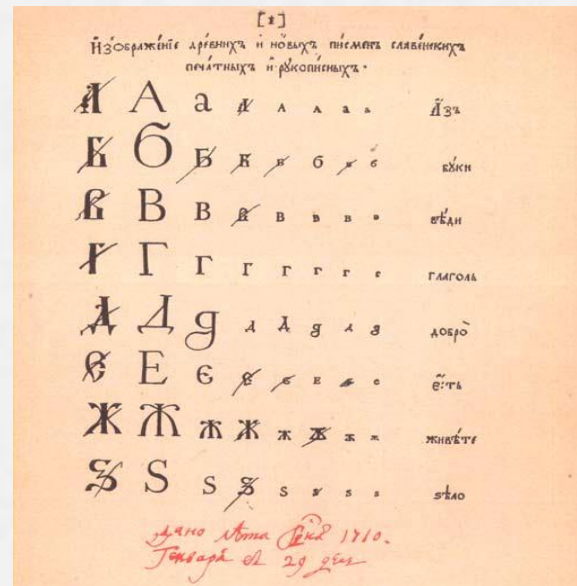 [1]
Изображéнїе дрéвнихъ и нóвыхъ письмéнъ славéнскихъ
печáтныхъ и рукопи́сныхъ.
А А а А А А а а Áзъ
Б Б Б Б Б б Б б бýки
В В В В В в в в вѣ́ди
Г Г Г Г Г г г г глагóль
Д Д д д Д д д д добрò
Є Е Є Є Є Е Є є є҆́сть
Ж Ж Ж Ж ж Ж ж ж живѣ́те
Ѕ Ѕ Ѕ Ѕ Ѕ ѕ ѕ ѕ ѕѣлò
дано лѣта 1710.
Генваря 29 дня